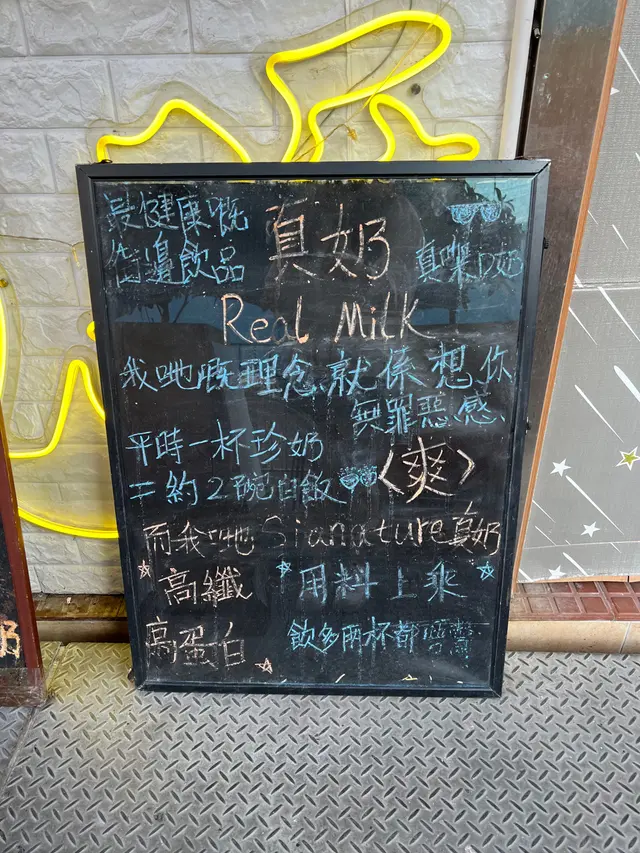 最健康嘅
街邊飲品
真奶
真㗎
Real Milk
我哋嘅理念就係想你
無罪惡感
平時一杯珍奶
=約2碗白飯
〈爽〉
而我哋Signature真奶
高纖
用料上乘
高蛋白
飲多兩杯都